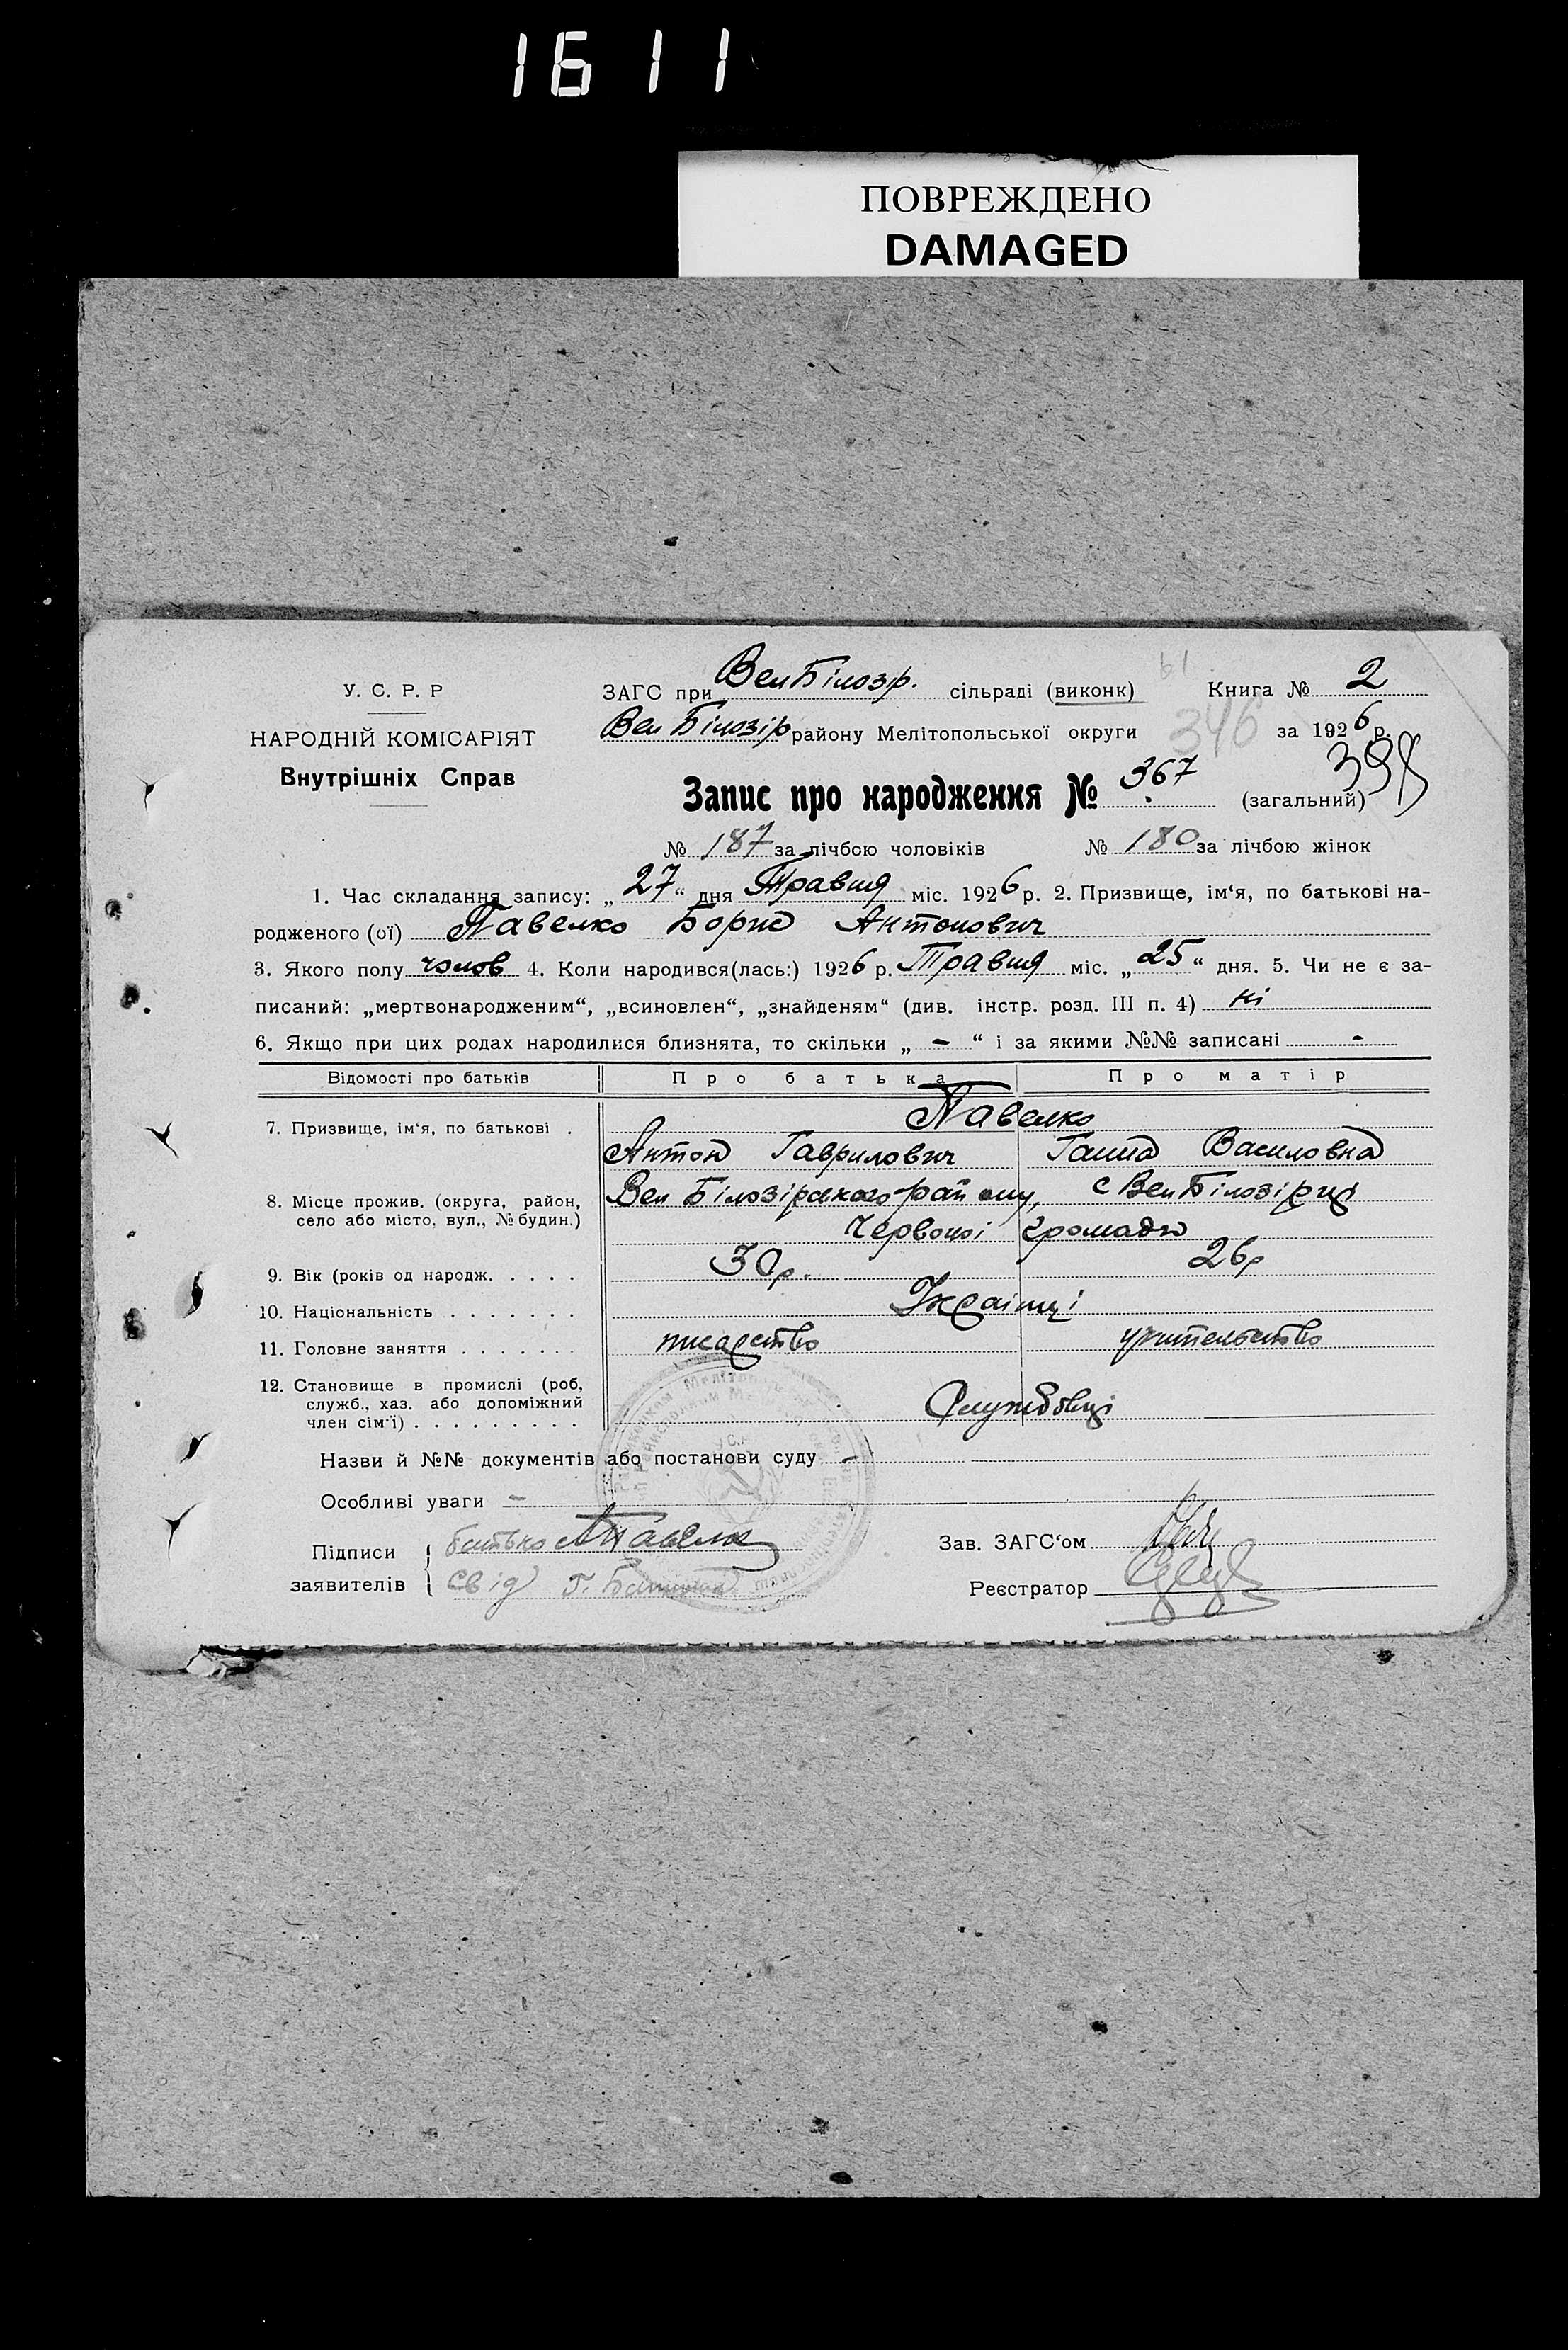 1611
ПОВРЕЖДЕНО
DAMAGED
У. С. Р. Р
НАРОДНІЙ КОМІСАРІЯТ
Внутрішніх Справ
ЗАГС при Вел Білозр. сільраді (виконк) 61 Книга № 2
Вел Білозір району Мелітопольської округи 346 за 1926 р.
Запис про народження № 367 (загальний)
№ 187 за лічбою чоловіків № 180 за лічбою жінок
1. Час складання запису: „27“ дня Травня міс. 1926 р. 2. Призвище, ім‘я, по батькові на-
родженого (ої) Павелко Борис Антонович
3. Якого полу чолов 4. Коли народився(лась:) 1926 р. Травня міс. „25“ дня. 5. Чи не є за-
писаний: „мертвонародженим“, „всиновлен“, „знайденям“ (див. інстр. розд. III п. 4) ні
6. Якщо при цих родах народилися близнята, то скільки „ - “ і за якими №№ записані -
Відомості про батьків Про батька Про матір
7. Призвище, ім‘я, по батькові . Павелко
Антон Гаврилович Ганна Василовна
8. Місце прожив. (округа, район, село або місто, вул., № будин.) Вел Білозірського району, с Вел Білозірці
Червоної громади
9. Вік (років од народж. . . . . 30р. 26р
10. Національність . . . . . . . Українці
11. Головне заняття . . . . . . . писарство учительство
12. Становище в промислі (роб, служб., хаз. або допоміжний член сім‘ї) . . . . . . . . . Службовці
Назви й №№ документів або постанови суду -
Особливі уваги -
Підписи заявителів батько АПавелко
свід Г.
Зав. ЗАГС‘ом
Реєстратор